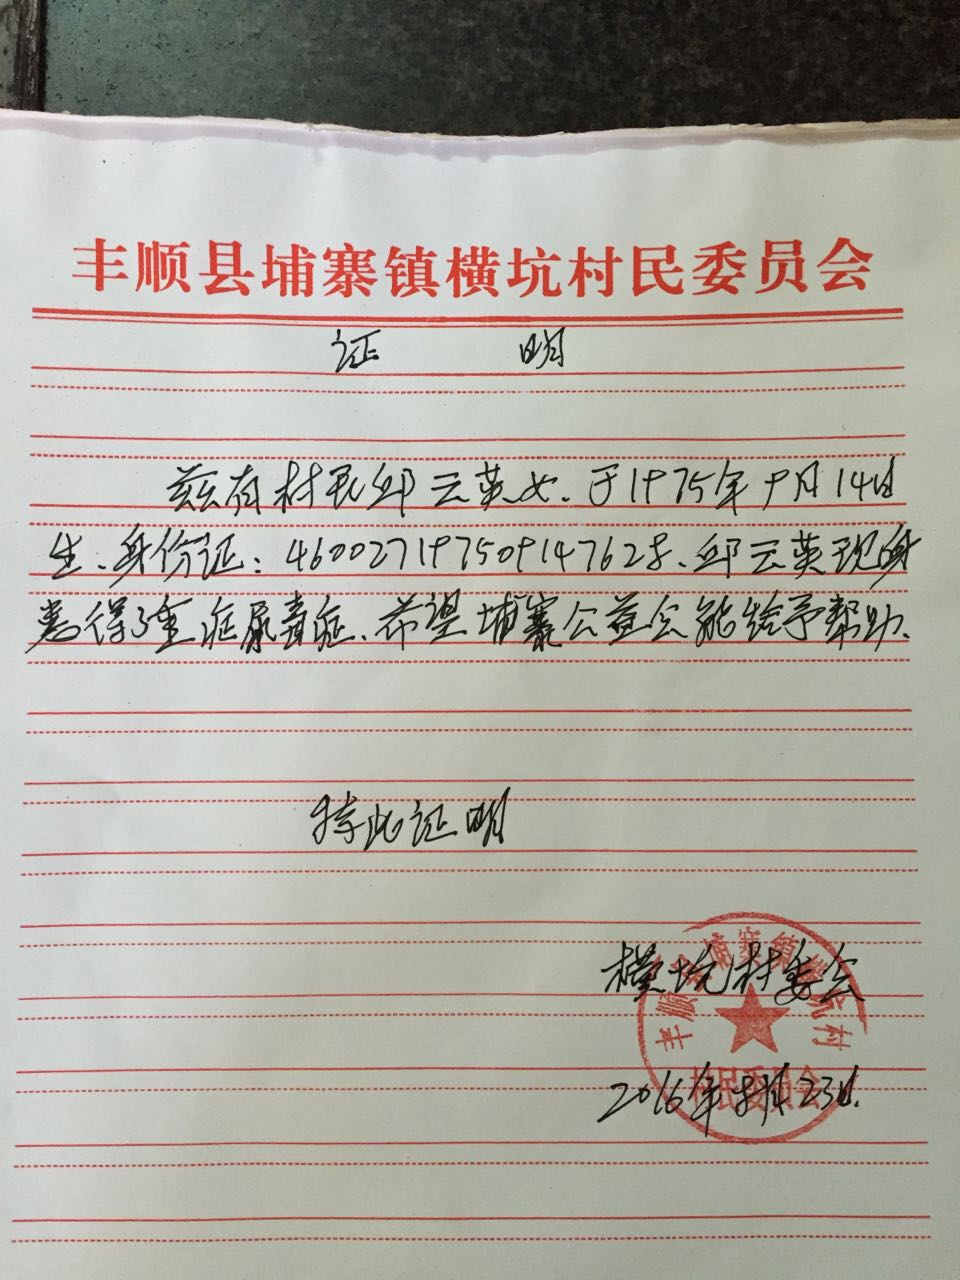 丰顺县埔寨镇横坑村民委员会
证 明
兹有村民邱云英女、于1975年9月14日
生、身份证：460027197509147628、邱云英现身
患得了重症尿毒症、希望埔寨公益会能给予帮助、
特此证明
横坑村委会
2016年 月23日.
丰顺县埔寨镇横坑村
村民委员会